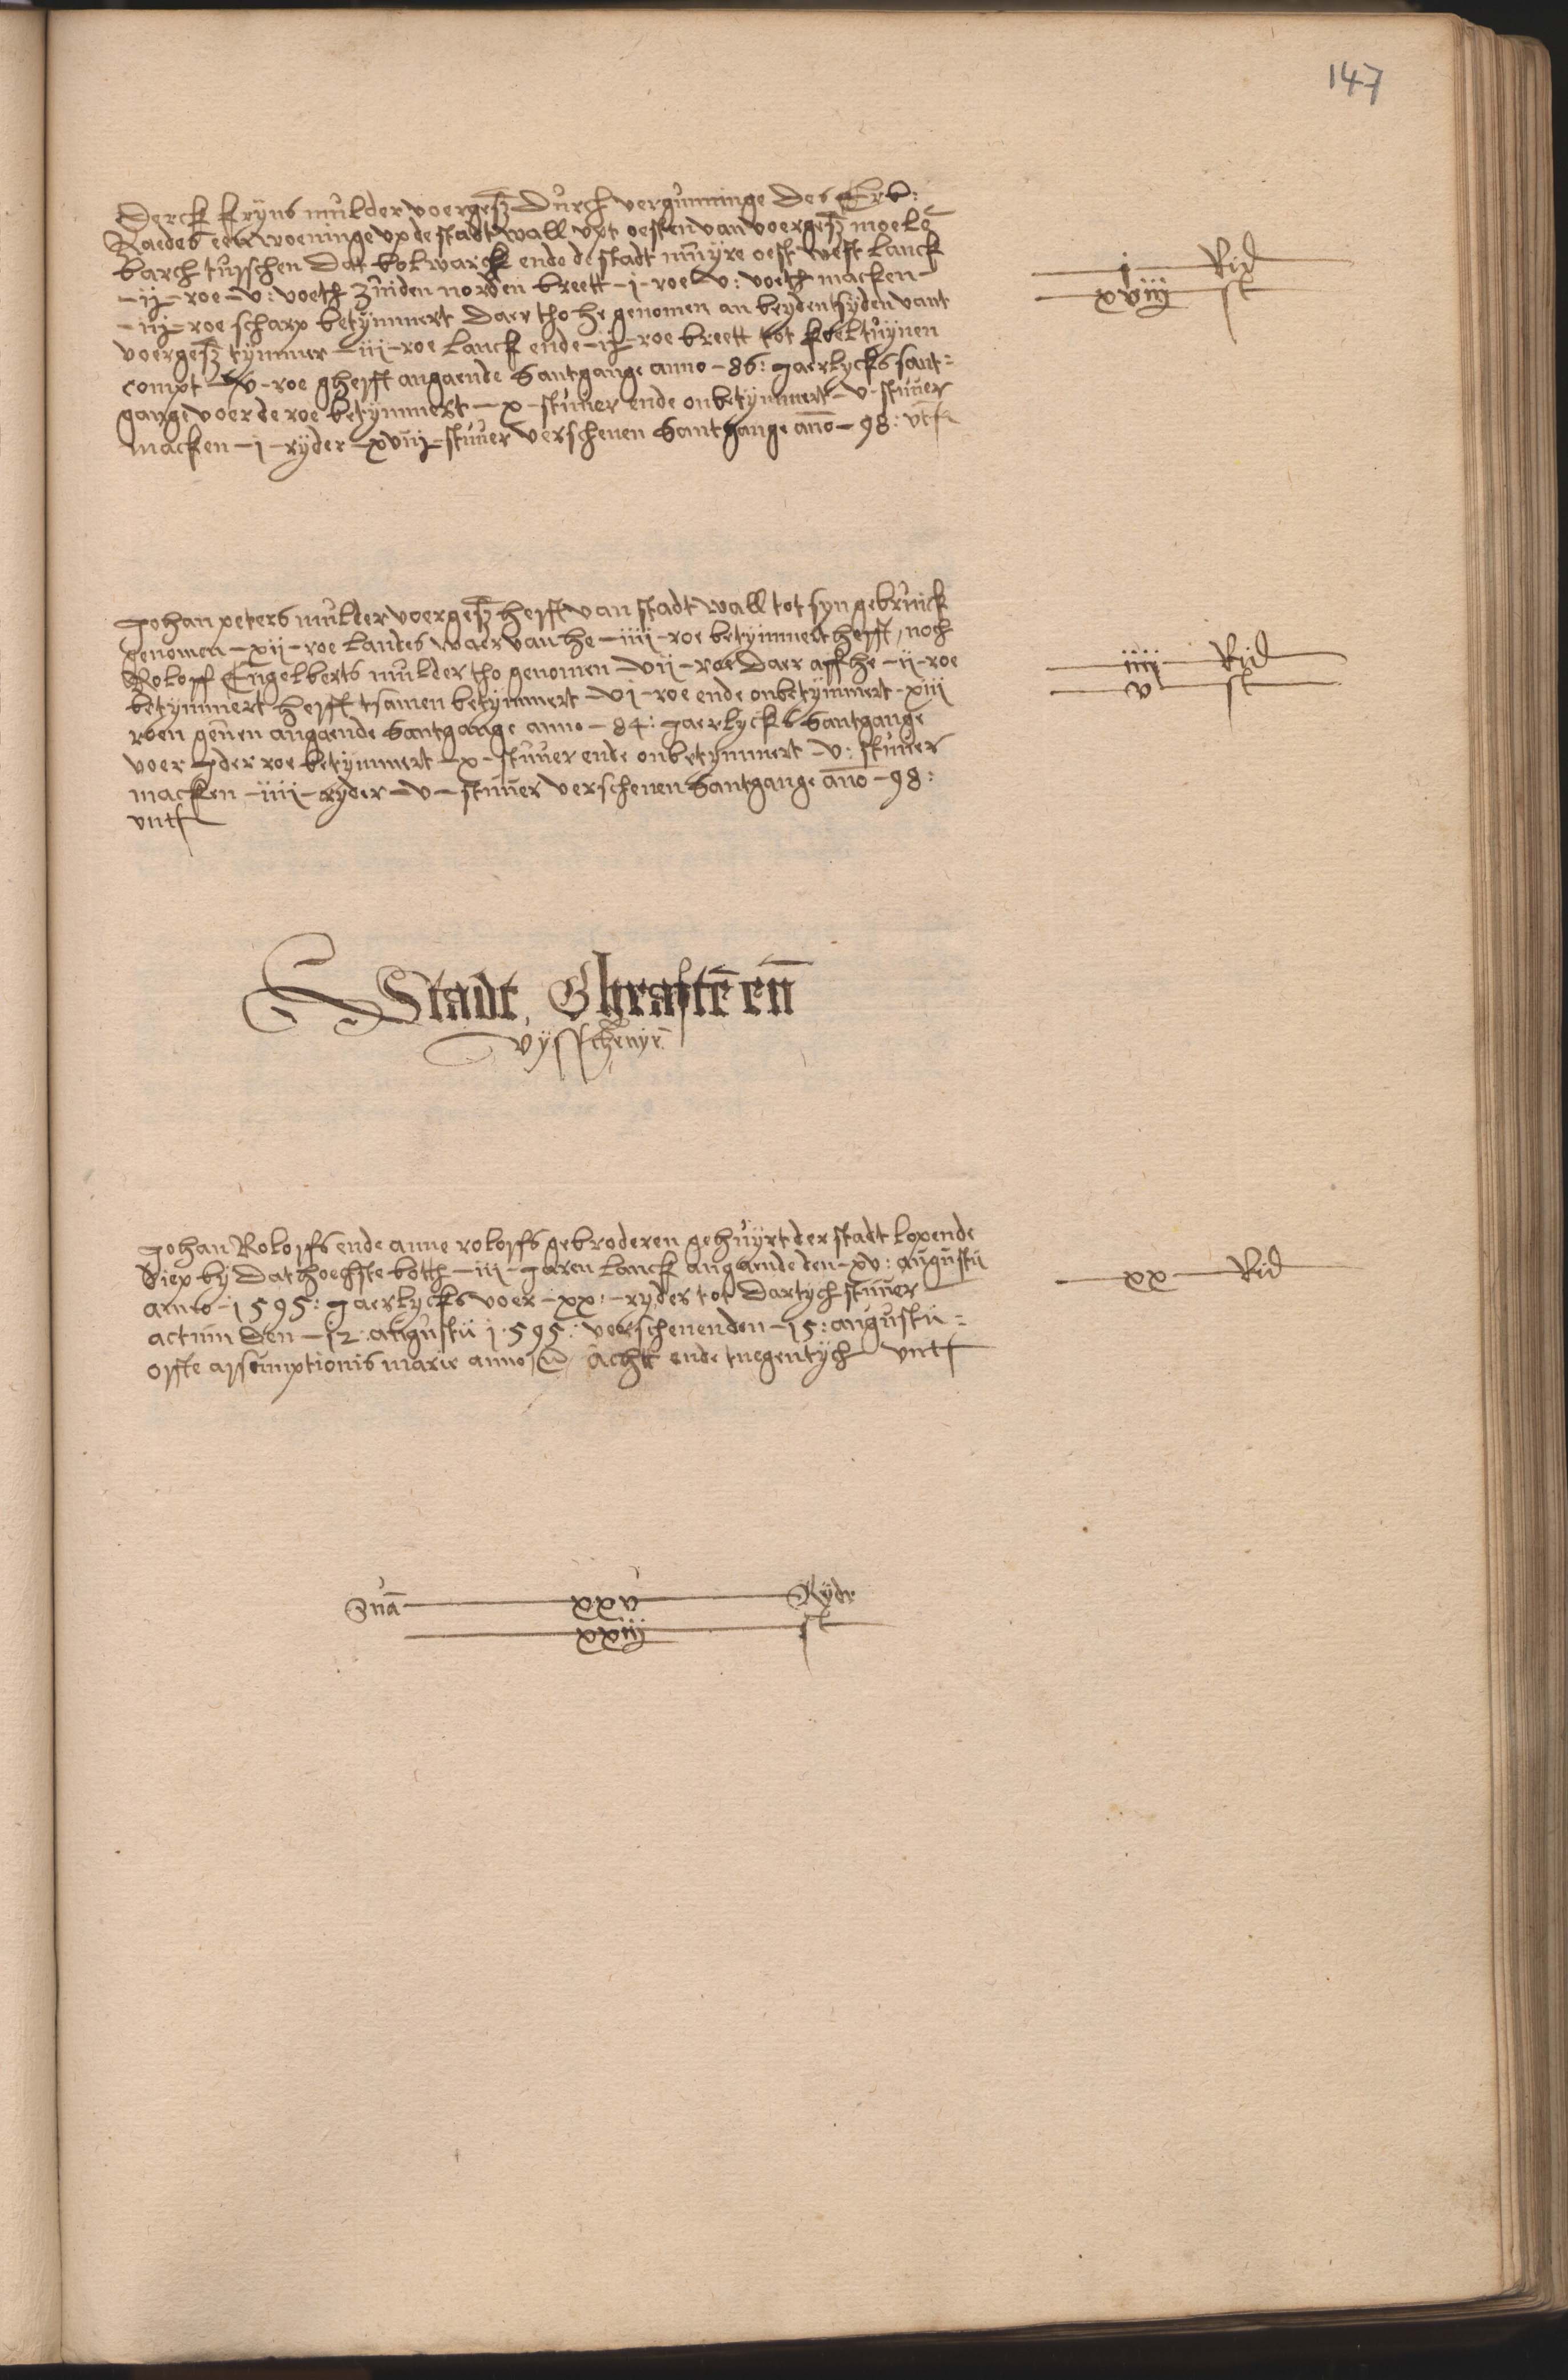 147
Derck Krÿns mulder voergesß durch vergunninge des Erb:
Raedes een woeninge vp de stadt wall vpt oesten van voergesß moelē
barch tusschen dat bolwarck ende de stadt muÿre oest west lanck
– ij – roe – v : voeth zuiden norden breett – j – roe v : voeth macken –
– iij – roe scharp betÿmmert daer tho he genomen an beyden syden vant
voergesß tÿmmer – iii – roe lanck ende – ij – roe breett tot koeltuÿnen
compt – – roe gheefft angaende Santgange anno – 86 : Jaerlycks sant=
gange voer de roe betÿmmert – x – stuver ende onbetÿmmert – v – stuver
macken – j – rÿder – xviij – stuver verschenen Santgange ano – 98 : vtſ
j Rid
xviij st
Johan peters mulder voergesß hefft van stadt wall tot syn gebruick
genomen – xii – roe landes waer van he – iiii – roe betÿmmert hefft, noch
Roloff Engelberts mulder tho genomen – vii – roe daer aff he – ii – roe
betÿmmert hefft tsamen betÿmmert – vi – roe ende onbetÿmmert – xiii
roen genen angaende Santgange anno – 84 : Jaerlycks Santgange
voer Jder roe betÿmmert – x – stuver ende onbetÿmmert – v : stuver
macken – iiii – ryder – v – stuver verschenen Santgange ano – 98 :
vntſ
iiii Rid
v st
Stadt, Ghraftē en̄
vÿsscherÿe
Johan Roloffs ende anne roloffs gebroderen gehuÿrt der stadt lopende
diep by dat hoechste both – iii – Jaren lanck angaende den – xv : augustii
anno – 1595 : Jaerlycks voer – xx – ryder tot dartych stuver
actum den – 12 augustii 1.595 : verschenen den – 15 : augustii =
offte assumptionis marie anno acht ende tnegentych vntſ
xx Rid
Suā xxv Rÿdr
xxiij st